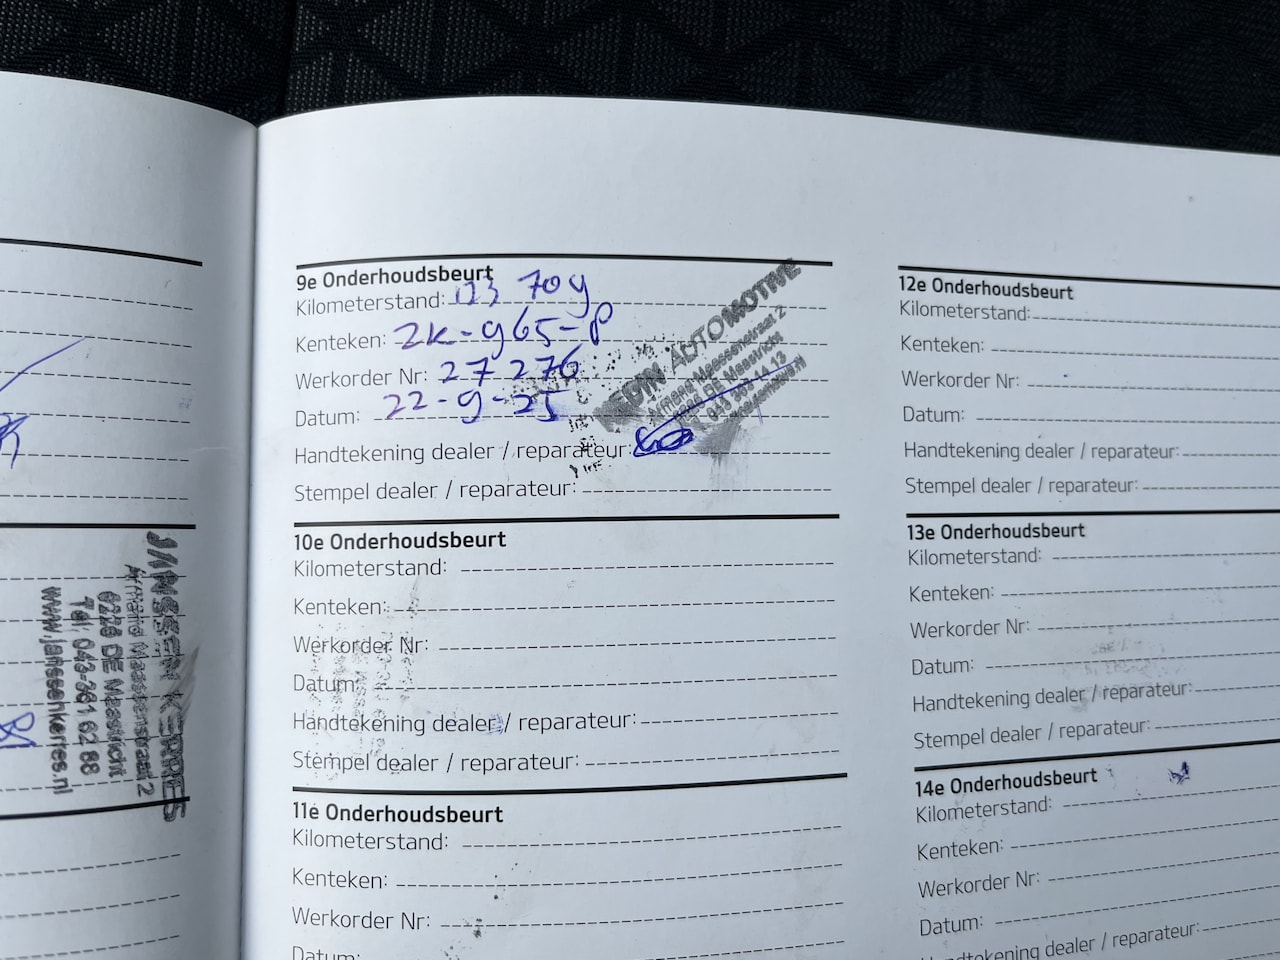 JANSSEN KERRES
Armand Maassenstraat 2
6228 DE Maastricht
Tel. 043-361 62 88
www.janssenkerres.nl
9e Onderhoudsbeurt
Kilometerstand: 113 709
Kenteken: ZK-965-P
Werkorder Nr: 27 276
Datum: 22-9-25
Handtekening dealer / reparateur:
Stempel dealer / reparateur:
AUTOMOTIVE
Armand Maassenstraat 2
Maastricht
10e Onderhoudsbeurt
Kilometerstand:
Kenteken:
Werkorder Nr:
Datum:
Handtekening dealer / reparateur:
Stempel dealer / reparateur:
11e Onderhoudsbeurt
Kilometerstand:
Kenteken:
Werkorder Nr:
Datum:
12e Onderhoudsbeurt
Kilometerstand:
Kenteken:
Werkorder Nr:
Datum:
Handtekening dealer / reparateur:
Stempel dealer / reparateur:
13e Onderhoudsbeurt
Kilometerstand:
Kenteken:
Werkorder Nr:
Datum:
Handtekening dealer / reparateur:
Stempel dealer / reparateur:
14e Onderhoudsbeurt
Kilometerstand:
Kenteken:
Werkorder Nr:
Datum:
Handtekening dealer / reparateur: